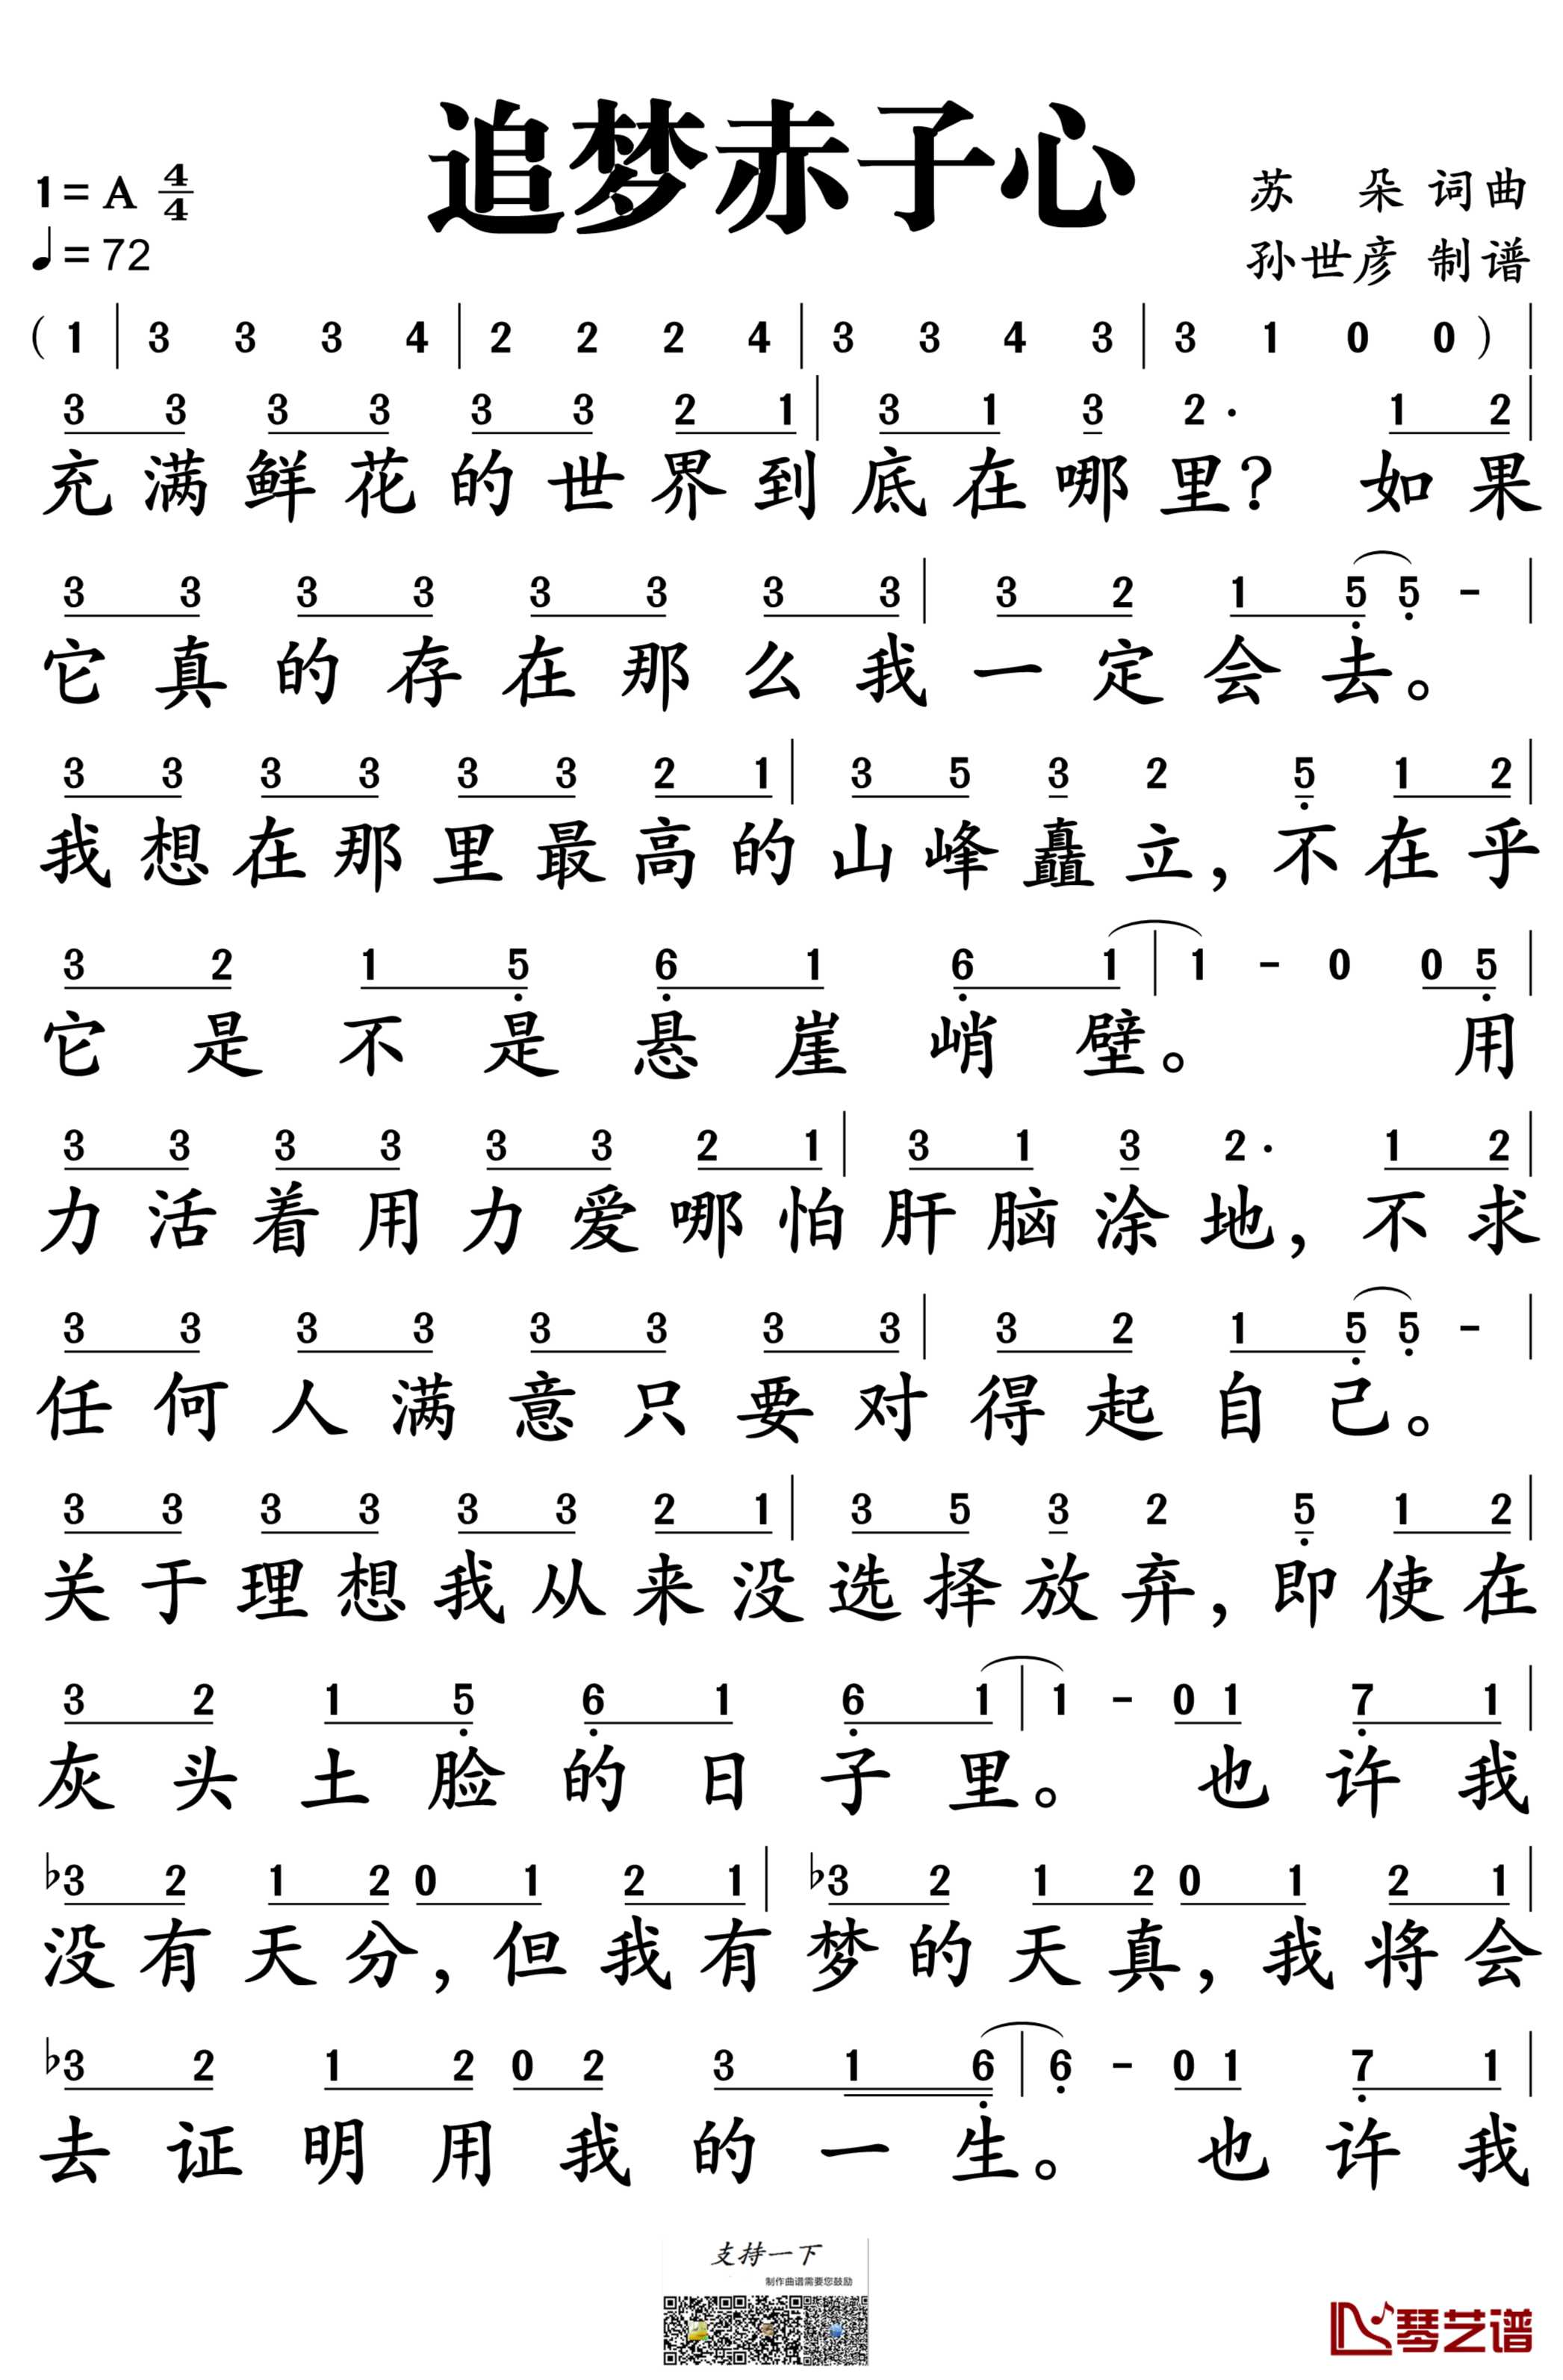 追梦赤子心
1= A 4/4
♩= 72
苏 朵 词曲
孙世彦 制谱
( 1 | 3 3 3 4 | 2 2 2 4 | 3 3 4 3 | 3 1 0 0 ) |
3 3 3 3 3 3 2 1 | 3 1 3 2· 1 2 |
充满鲜花的世界到底在哪里? 如果
3 3 3 3 3 3 3 3 | 3 2 1 5̣ 5̣ - |
它真的存在那么我一定会去。
3 3 3 3 3 3 2 1 | 3 5 3 2 5̣ 1 2 |
我想在那里最高的山峰矗立,不在乎
3 2 1 5̣ 6̣ 1 6̣ 1 | 1 - 0 0 5̣ |
它是不是悬崖峭壁。 用
3 3 3 3 3 3 2 1 | 3 1 3 2· 1 2 |
力活着用力爱哪怕肝脑涂地,不求
3 3 3 3 3 3 3 3 | 3 2 1 5̣ 5̣ - |
任何人满意只要对得起自己。
3 3 3 3 3 3 2 1 | 3 5 3 2 5̣ 1 2 |
关于理想我从来没选择放弃,即使在
3 2 1 5̣ 6̣ 1 6̣ 1 | 1 - 0 1 7̣ 1 |
灰头土脸的日子里。 也许我
♭3 2 1 2 0 1 2 1 | ♭3 2 1 2 0 1 2 1 |
没有天分,但我有梦的天真,我将会
♭3 2 1 2 0 2 3 1 6̣ | 6̣ - 0 1 7̣ 1 |
去证明用我的一生。 也许我
支持一下
制作曲谱需要您鼓励
琴艺谱